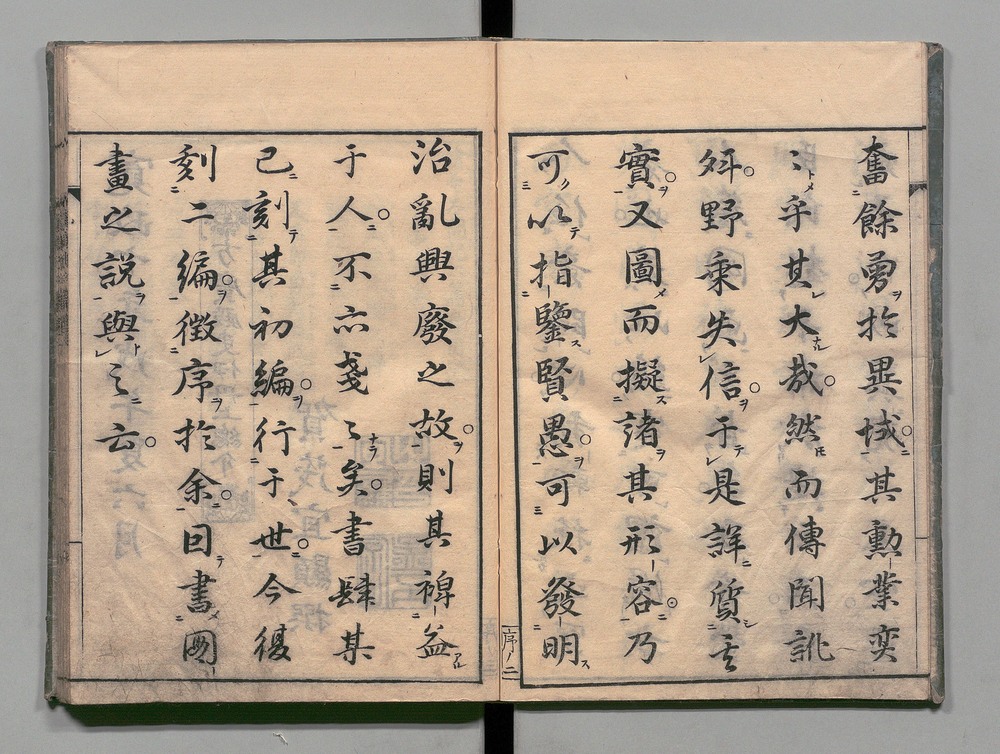 奮餘勇於異域其勳業奕
〻乎其大哉然而傳聞訛
舛野乘失信于是詳質其
實又圖而擬諸其形容乃
可以指鑒賢愚可以發明
序ノ二
治亂興廢之故則其裨益
于人不亦戔〻矣書肆某
已刻其初編行于世今復
刻二編徴序於余曰書圖
畫之説與之云